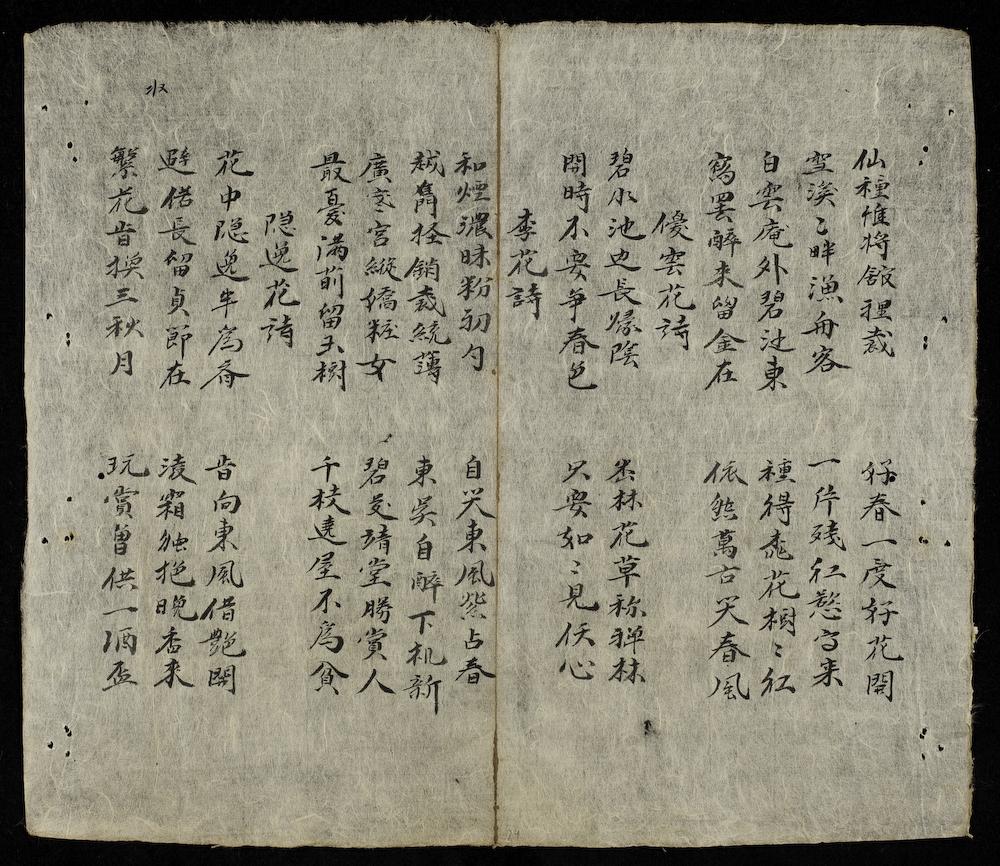 仙種惟将舘裡栽 好春一度好花開
空溪〻畔漁舟客 一片殘紅惹客来
白雲庵外碧池東 種得桃花樹〻紅
寫罢醉来留金在 依然萬古笑春風
優雲花詩
碧水池边長緑陰 叢林花草称禅林
開時不要争春色 只要如〻見佚心
李花詩
和煙濃昧粉初勻 自笑東風紫占春
越雋轻銷裁統薄 東吴自醉下机新
廣寒宫縱僑粧女 碧芰靖堂勝賞人
最憂满前留玉樹 千枝遶屋不為貧
隠逸花詩
花中隠逸牛為奇 昔向東風借艶開
避偌長留貞節在 淩霜独抱晚香来
繁花昔换三秋月 玩賞曾供一酒盃